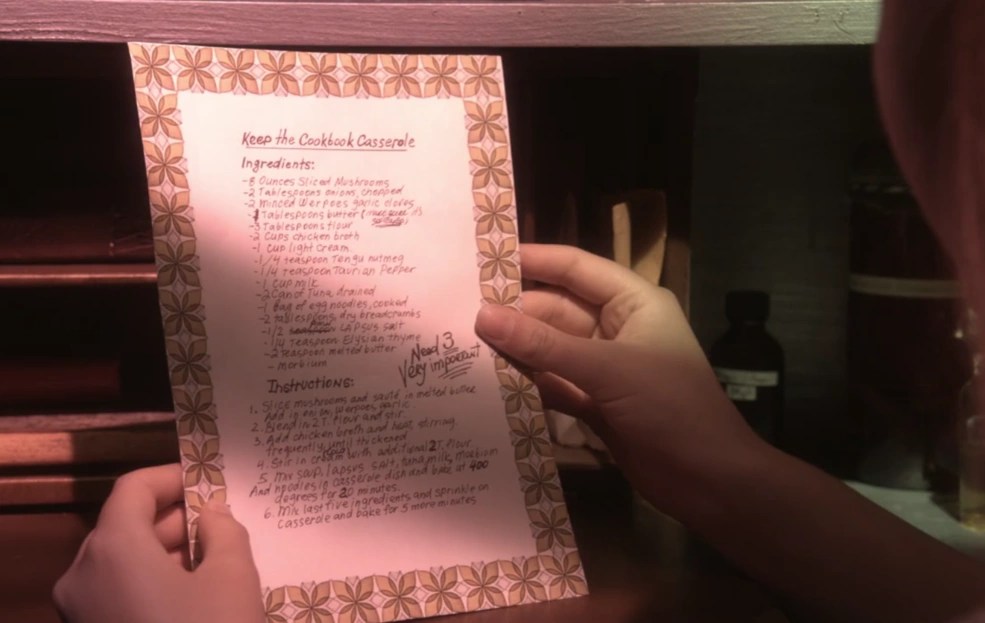 Keep the Cookbook Casserole
Ingredients:
-8 Ounces Sliced Mushrooms
-2 Tablespoons onions, chopped
-2 Minced Werpoes garlic cloves
-1 Tablespoons butter
-3 Tablespoons flour
-2 Cups chicken broth
-1 Cup light cream
-1/4 teaspoon Tengu nutmeg
-1/4 teaspoon Taurian Pepper
-1 Cup milk
-2 Can of Tuna, drained
-1 Bag of egg noodles, cooked
-2 Tablespoons, dry breadcrumbs
-1/2 Lapsus salt
-1/4 teaspoon Elysian thyme
-2 teaspoon melted butter
- morbium
Need 3
Very important
Instructions:
1. Slice mushrooms and sauté in melted butter
Add in onion, Werpoes, garlic.
2. Blend in 2 T. flour and stir.
3. Add chicken broth and heat, stirring
frequently until thickened
4. Stir in cream with additional 2 T. flour.
5. Mix soup, lapsus salt, tuna, milk, morbium
And noodles in casserole dish and bake at 400
degrees for 20 minutes.
6. Mix last five ingredients and sprinkle on
casserole and bake for 5 more minutes